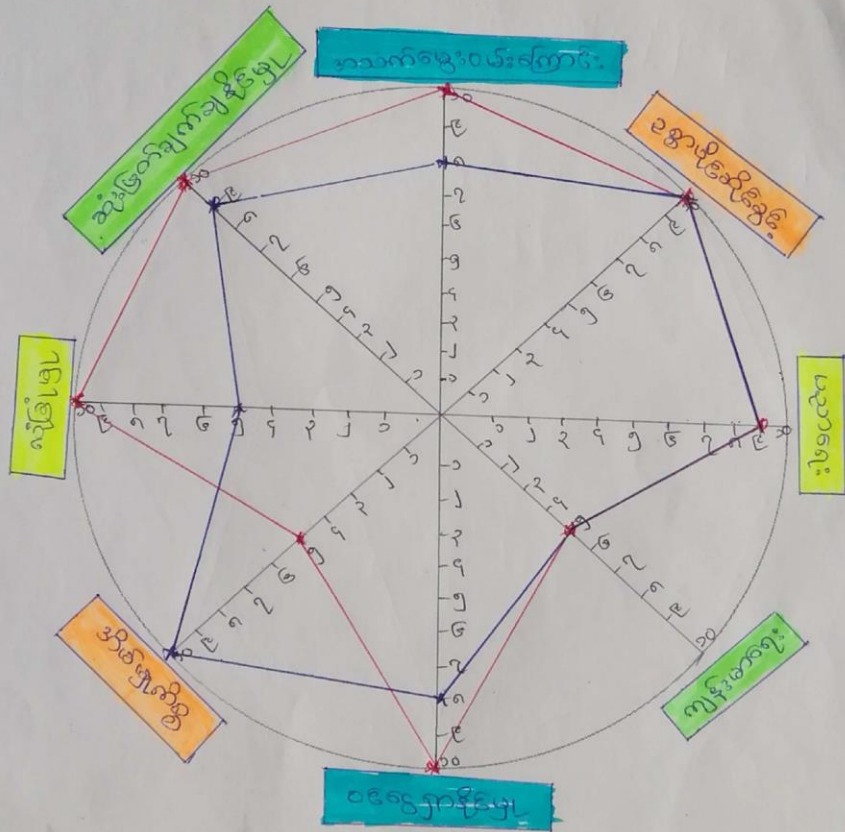 အသက်မွေးဝမ်းကြောင်း
ဥစ္စာပိုင်ဆိုင်ခွင့်
ပညာရေး
ကျန်းမာရေး
ဝင်ငွေရှာနိုင်မှု
အိမ်မှုကိစ္စ
လုံခြုံမှု
ဆုံးဖြတ်ချက်ချနိုင်မှု
၁ ၂ ၃ ၄ ၅ ၆ ၇ ၈ ၉ ၁၀
၁ ၂ ၃ ၄ ၅ ၆ ၇ ၈ ၉ ၁၀
၁ ၂ ၃ ၄ ၅ ၆ ၇ ၈ ၉ ၁၀
၁ ၂ ၃ ၄ ၅ ၆ ၇ ၈ ၉ ၁၀
၁ ၂ ၃ ၄ ၅ ၆ ၇ ၈ ၉ ၁၀
၁ ၂ ၃ ၄ ၅ ၆ ၇ ၈ ၉ ၁၀
၁ ၂ ၃ ၄ ၅ ၆ ၇ ၈ ၉ ၁၀
၁ ၂ ၃ ၄ ၅ ၆ ၇ ၈ ၉ ၁၀